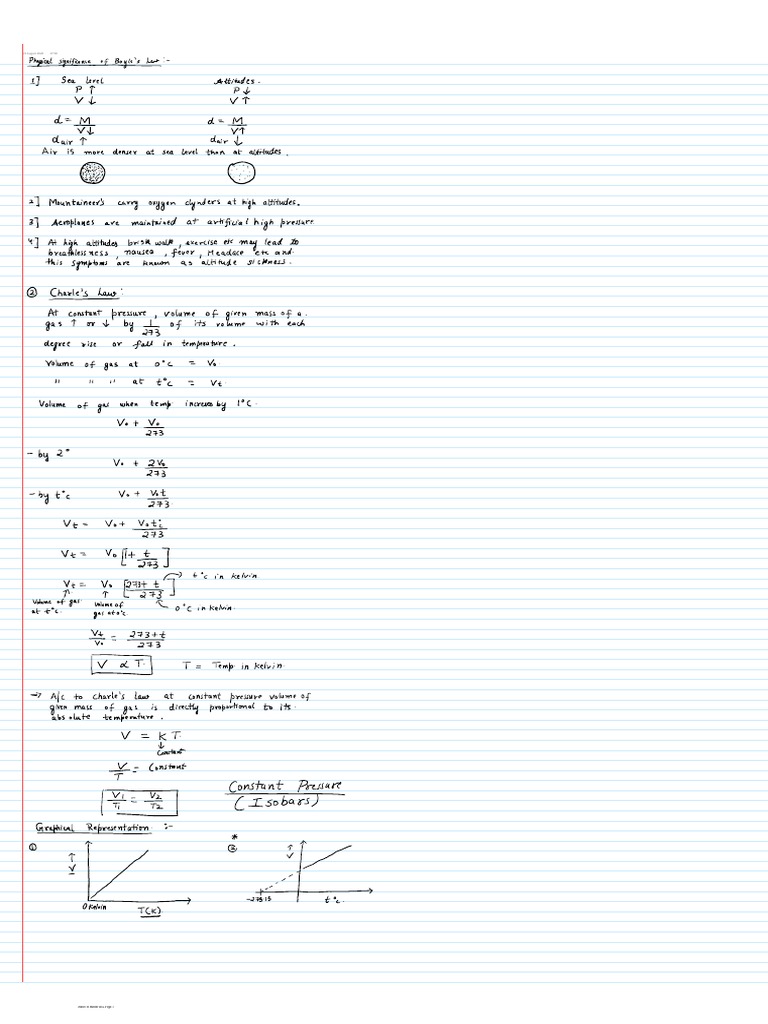 Physical significance of Boyle's Law :-
1] Sea level Altitudes.
P ↑ P ↓
V ↓ V ↑
d = M/V↓ d = M/V↑
dair ↑ dair ↓
Air is more denser at sea level than at altitudes.
2] Mountaineer's carry oxygen clynders at high altitudes.
3] Aeroplanes are maintained at artificial high pressure
4] At high altitudes brisk walk, exercise etc may lead to
breathlessness, nausea, fever, Headace etc and
this symptoms are known as altitude sickness.
② Charle's Law :
At constant pressure, volume of given mass of a
gas ↑ or ↓ by 1/273 of its volume with each
degree rise or fall in temperature.
Volume of gas at 0°c = V₀
" " " at t°c = Vt
Volume of gas when temp increases by 1°C.
V₀ + V₀/273
- by 2° V₀ + 2V₀/273
- by t°c V₀ + V₀t/273
Vt = V₀ + V₀t°c/273
Vt = V₀ [1 + t/273]
Vt = V₀ [273 + t/273] → t°c in kelvin
Volume of gas at t°c. Volume of gas at 0°c. 0°C in kelvin.
Vt/V₀ = 273+t/273
V ∝ T. T = Temp in kelvin
→ A/c to charle's law at constant pressure volume of
given mass of gas is directly proportional to its
absolute temperature.
V = K T.
↓
Constant
V/T = Constant
V1/T1 = V2/T2 Constant Pressure
(Isobars)
Graphical Representation :-
① *②
↑ V ↑ V
0 Kelvin T(K) -273.15 t°c.